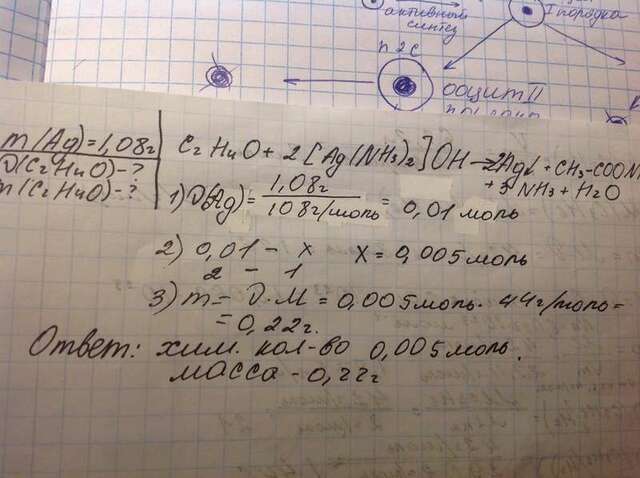 активный
синтез
I порядка
n2c
ооцит II
m(Ag)=1,08г
ν(C2H4O)-?
m(C2H4O)-?
C2H4O+2[Ag(NH3)2]OH→2Ag↓+CH3-COON
+3NH3+H2O
1) ν(Ag)=1,08г/108г/моль=0,01 моль
2) 0,01 - x x=0,005моль
2 - 1
3) m=ν·M=0,005моль·44г/моль=
=0,22г.
Ответ: хим. кол-во 0,005моль.
масса-0,22г